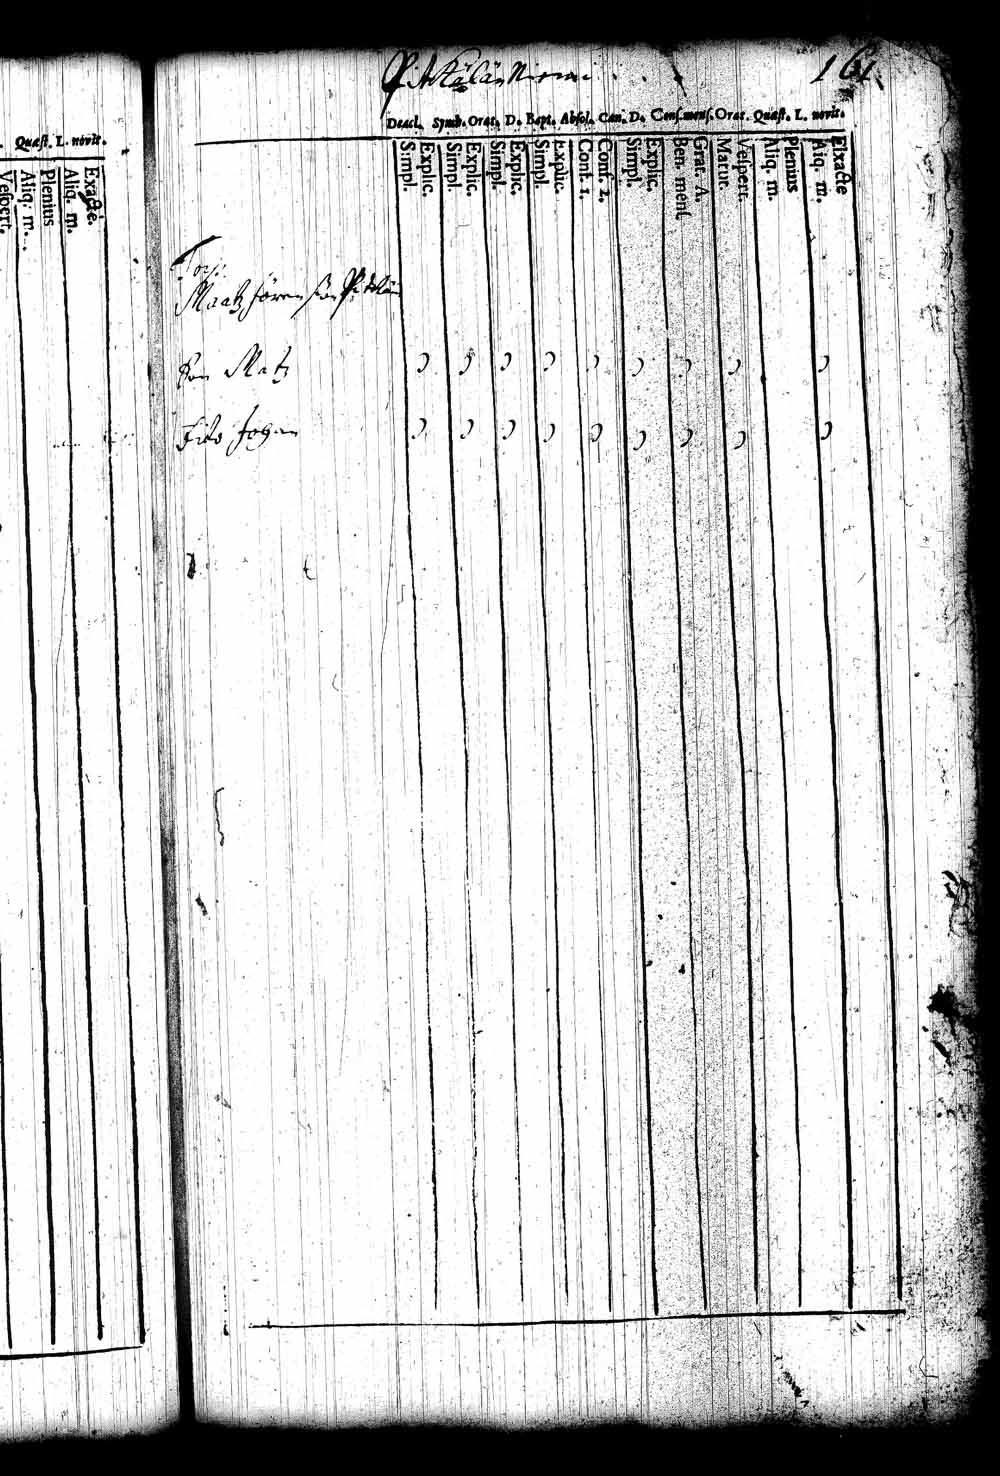 Pitkälän Niemi
161
Quæst. L. novit.
Decal. Symb. Orat. D. Bapt. Absol. Cœn. D. Conf. mens. Orat. Quæst. L. novit.
Vespert.
Aliq. m.
Plenius
Aliq. m.
Exacte.
Simpl.
Explic.
Simpl.
Explic.
Simpl.
Explic.
Simpl.
Explic.
Conf. 1.
Conf. 2.
Simpl.
Explic.
Ben. mens.
Grat. A.
Matur.
Vespert.
Aliq. m.
Plenius
Aliq. m.
Exacte
Torp.
Matz
Son Matz
Johan